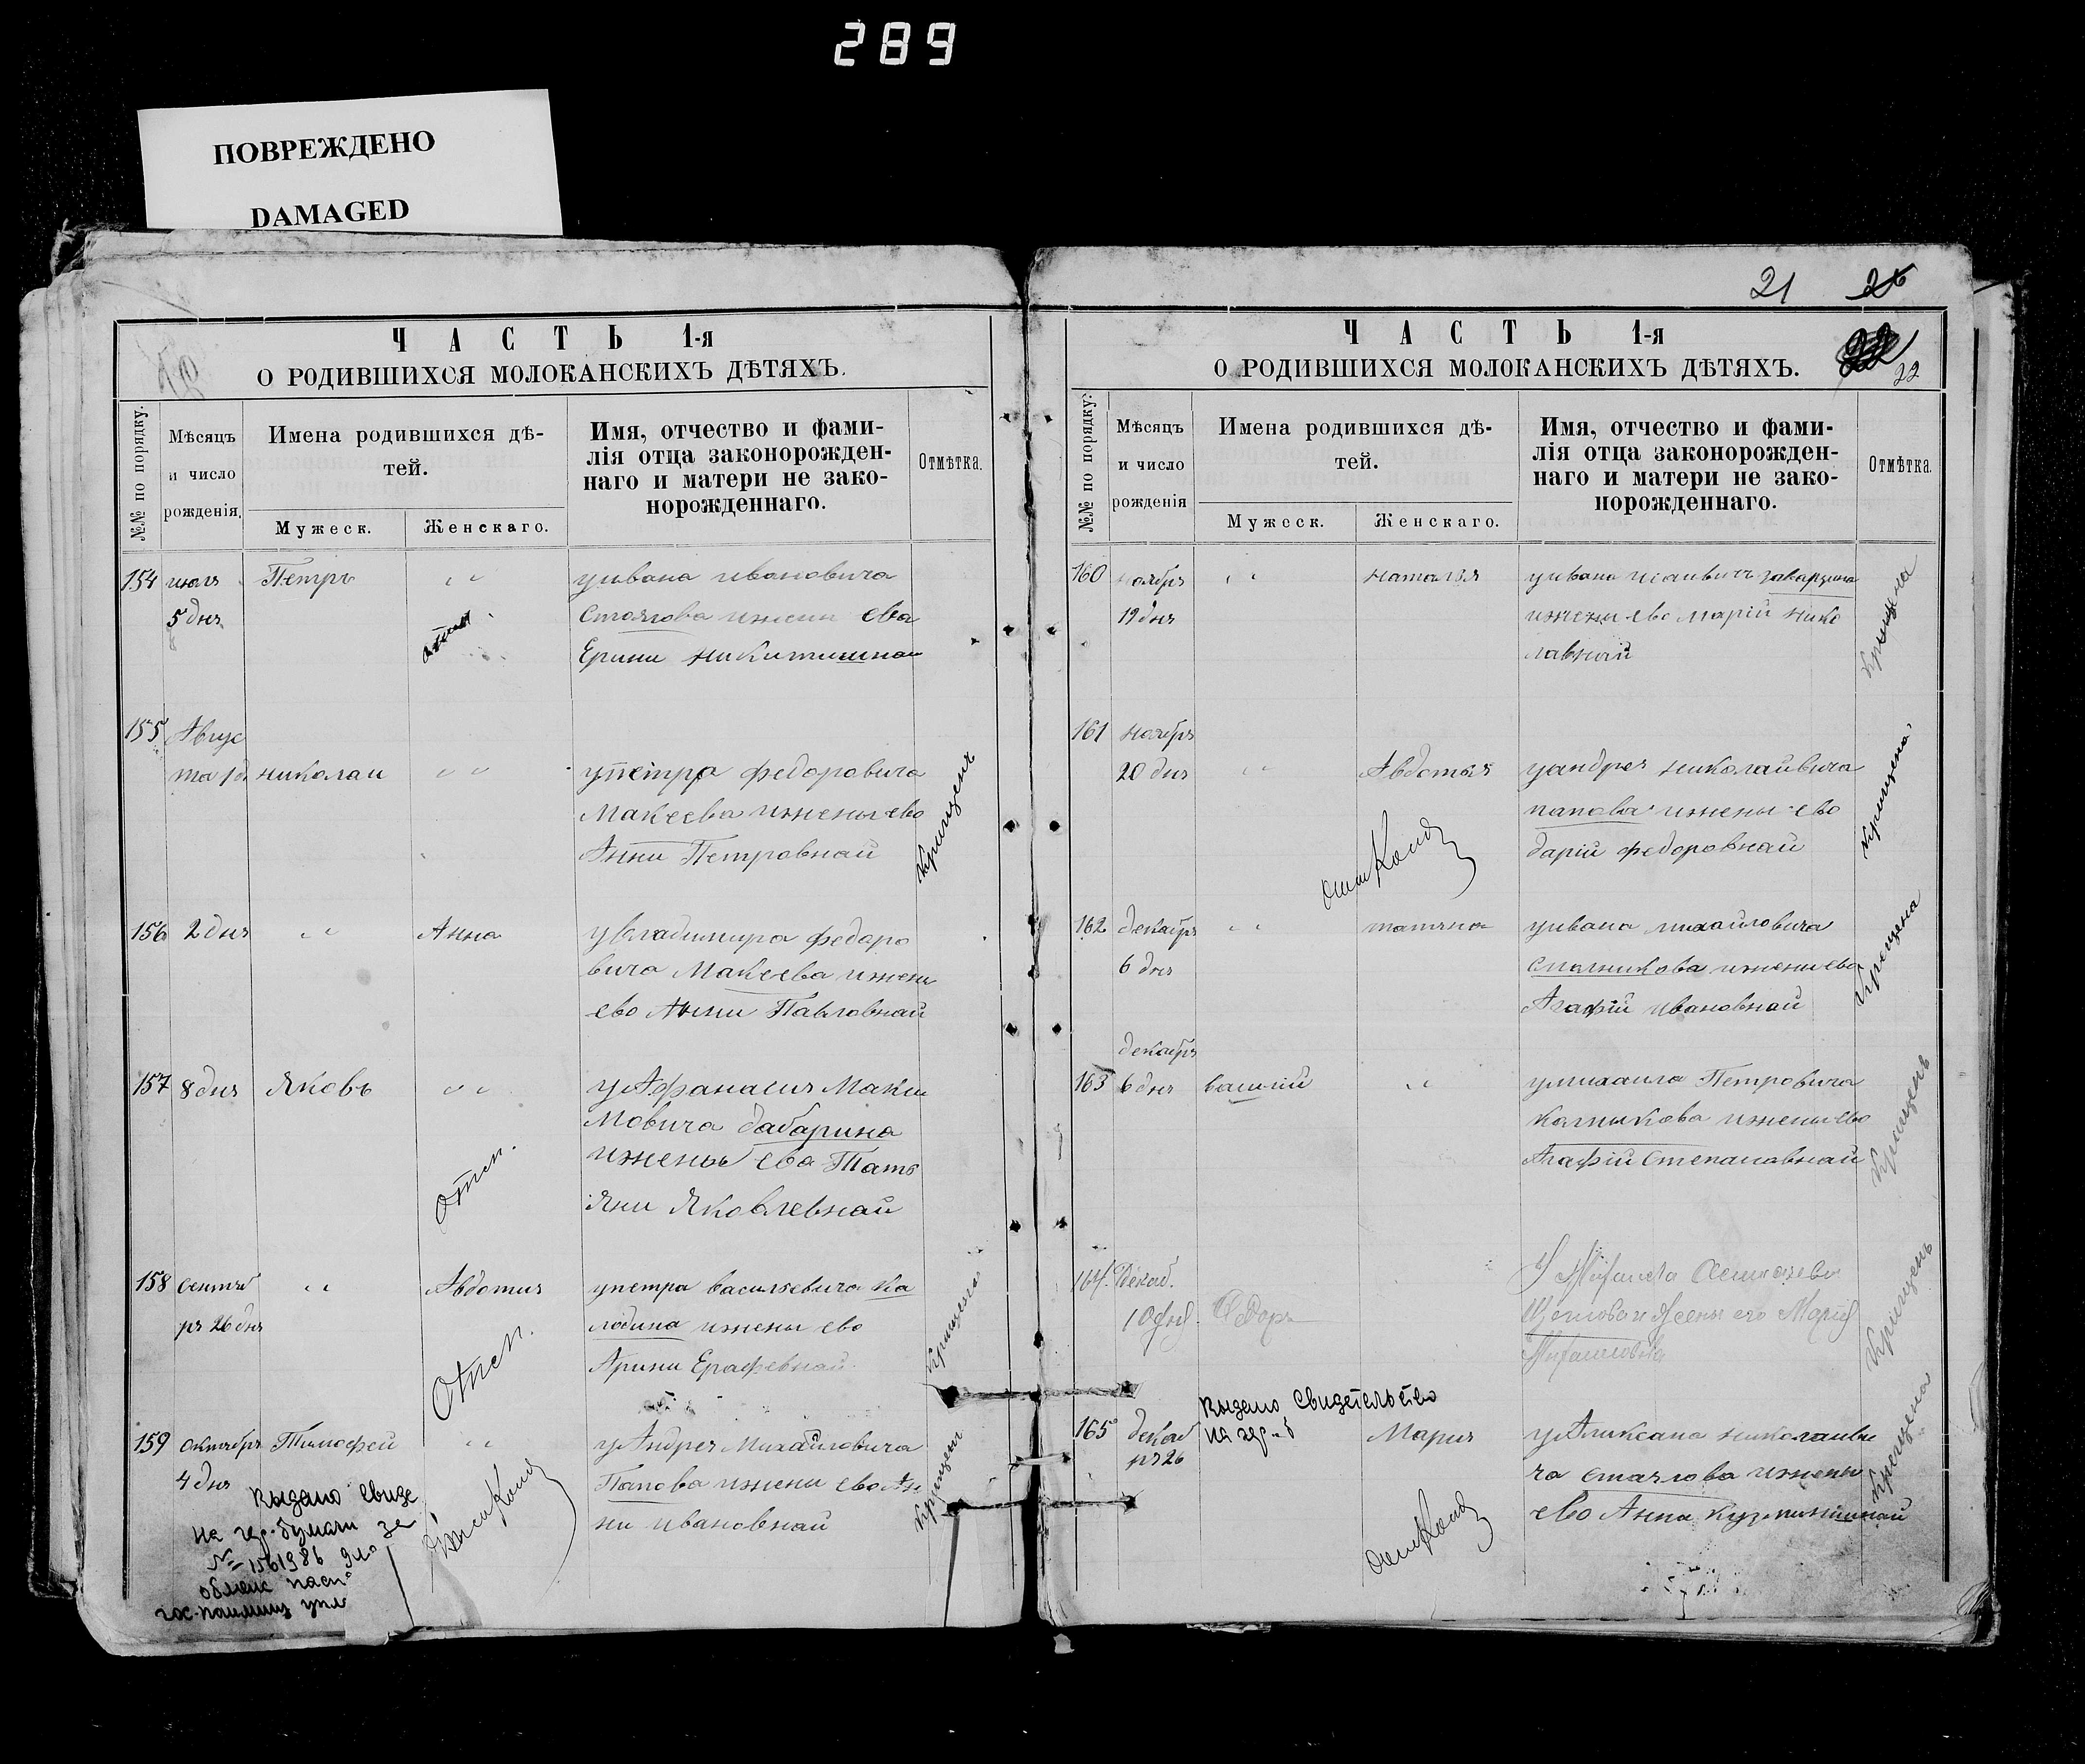 289
ПОВРЕЖДЕНО
DAMAGED
ЧАСТЬ 1-я
О РОДИВШИХСЯ МОЛОКАНСКИХЪ ДѢТЯХЪ.
№№ по порядку.
Мѣсяцъ и число рожденія.
Имена родившихся дѣтей.
Мужеск.
Женскаго.
Имя, отчество и фами-
лія отца законорожден-
наго и матери не зако-
норожденнаго.
Отмѣтка.
154 июля Петръ уивана ивановича
5 дня Стоялова ижени ево
Ерини никитишнои
155 Авгус
та 1 д николаи упетра федоровича
Макеева ижены ево
Анни Петровнай
Крищенъ
156 2 дня Анна увладимира федаро
вича Макеева ижени
ево Анни Павловнай
157 8 дня Яковъ уАфанасия Макси
мовича дабарина
ижены ево Тать
Отсп.
яни Яковлевнай
158 сентяб Авдотия упетра васильевича ка
ря 26 дня лодина ижены ево
Отсп.
Арини Ерафевнай
159 октября Тимофеи уАндрея Михайловича
4 дня Папова ижени ево Ан
ни ивановнай
Выдано свиде
на гер. бумаги за
№ 1561986
обмене пасп
21 26
22
22
ЧАСТЬ 1-я
О РОДИВШИХСЯ МОЛОКАНСКИХЪ ДѢТЯХЪ.
№№ по порядку.
Мѣсяцъ и число рожденія
Имена родившихся дѣтей.
Мужеск.
Женскаго.
Имя, отчество и фами-
лія отца законорожден-
наго и матери не зако-
норожденнаго.
Отмѣтка.
160 ноября наталия уивана
19 дня ижены ево марій нико
лавнай
Крыщена
161 ноября
20 дня Авдотья уандрея николаивича
папова ижены ево
дарій федоровнай
Крищена
162 декабря татяна уивана михайловича
6 дня ижены ево
Агафій ивановнай
Крещена
декабря
163 6 дня василий умихаила Петровича
калмыкова ижены ево
Агафій Степановнай
Крищень
164. Декаб.
10 дня Федоръ Щеглова и Жены его Марій
Крищень
Выдано Свидетельство
165 декаб на гер. б Мария уАликсана николаиви
ря 26 ча стаялова ижены
ево Анна кузминишнай
Крещена